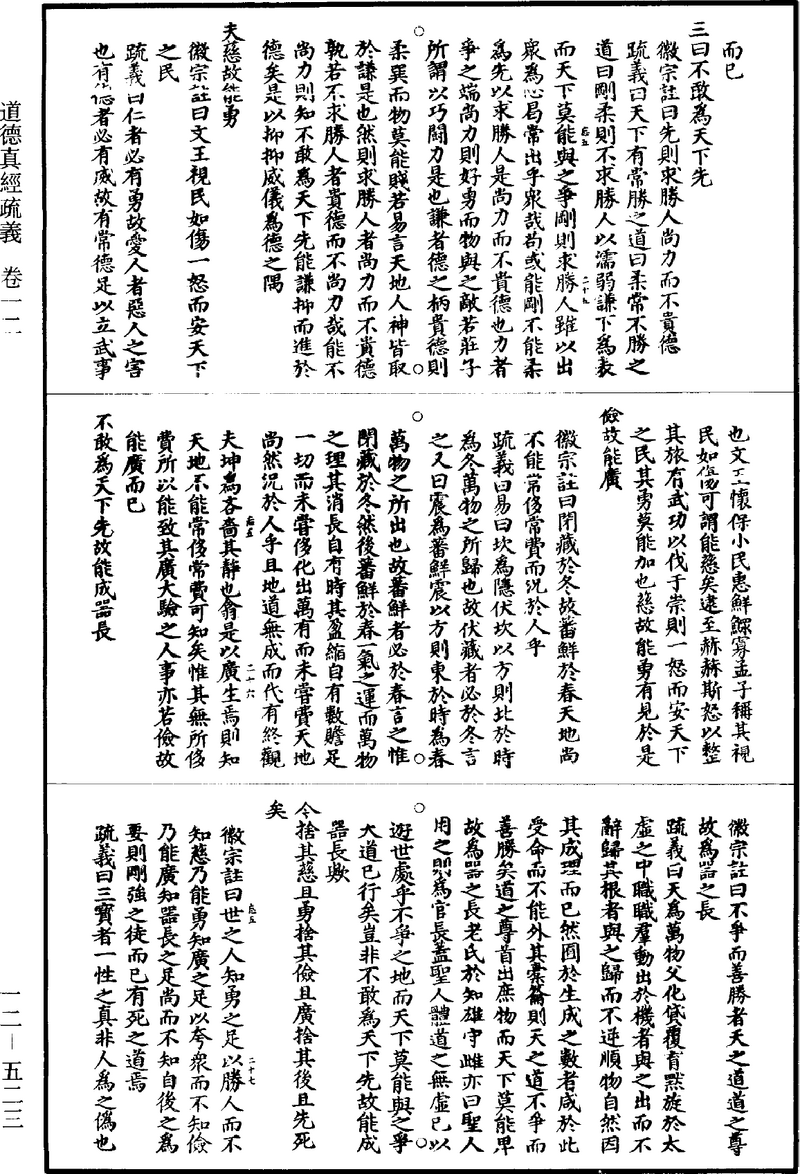 道德真經疏義　卷一二
一二－五二三
而已
三曰不敢為天下先
徽宗註曰先則求勝人尚力而不貴德
疏義曰天下有常勝之道曰柔常不勝之
道曰剛柔則不求勝人以濡弱謙下為表
而天下莫能與之爭剛則求勝人雖以出
眾為心曷常出乎眾哉苟或能剛不能柔
為先以求勝人是尚力而不貴德也力者
爭之端尚力則好勇而物與之敵若莊子
所謂以巧鬪力是也謙者德之柄貴德則
柔巽而物莫能賊若易言天地人神皆取
於謙是也然則求勝人者尚力而不貴德
孰若不求勝人者貴德而不尚力哉能不
尚力則知不敢為天下先能謙抑而進於
德矣是以抑抑威儀為德之隅
夫慈故能勇
徽宗註曰文王視民如傷一怒而安天下
之民
疏義曰仁者必有勇故愛人者惡人之害
也有德者必有威故有常德足以立武事
也文王懷保小民惠鮮鰥寡孟子稱其視
民如傷可謂能慈矣逮至赫赫斯怒以整
其旅有武功以伐于崇則一怒而安天下
之民其勇莫能加也慈故能勇有見於是
儉故能廣
徽宗註曰閉藏於冬故蕃鮮於春天地尚
不能常侈常費而況於人乎
疏義曰易曰坎為隱伏坎以方則北於時
為冬萬物之所歸也故伏藏者必於冬言
之又曰震為蕃鮮震以方則東於時為春
萬物之所出也故蕃鮮者必於春言之惟
閉藏於冬然後蕃鮮於春一氣之運而萬物
之理其消長自有時其盈縮自有數贍足
一切而未嘗侈化出萬有而未嘗費天地
尚然況於人乎且地道無成而代有終觀
夫坤為吝嗇其靜也翕是以廣生焉則知
天地不能常侈常費可知矣惟其無所侈
費所以能致其廣大驗之人事亦若儉故
能廣而已
不敢為天下先故能成器長
徽宗註曰不爭而善勝者天之道道之尊
故為器之長
疏義曰天為萬物父化貸覆育默旋於太
虛之中職職羣動出於機者與之出而不
辭歸其根者與之歸而不逆順物自然因
其成理而已然囿於生成之數者咸於此
受命而不能外其橐籥則天之道不爭而
善勝矣道之尊首出庶物而天下莫能卑
故為器之長老氏於知雄守雌亦曰聖人
用之則為官長蓋聖人體道之無虛已以
遊世處乎不爭之地而天下莫能與之爭
大道已行矣豈非不敢為天下先故能成
器長歟
今捨其慈且勇捨其儉且廣捨其後且先死
矣
徽宗註曰世之人知勇之足以勝人而不
知慈乃能勇知廣之足以夸眾而不知儉
乃能廣知器長之足尚而不知自後之為
要則剛強之徒而已有死之道焉
疏義曰三寶者一性之真非人為之偽也